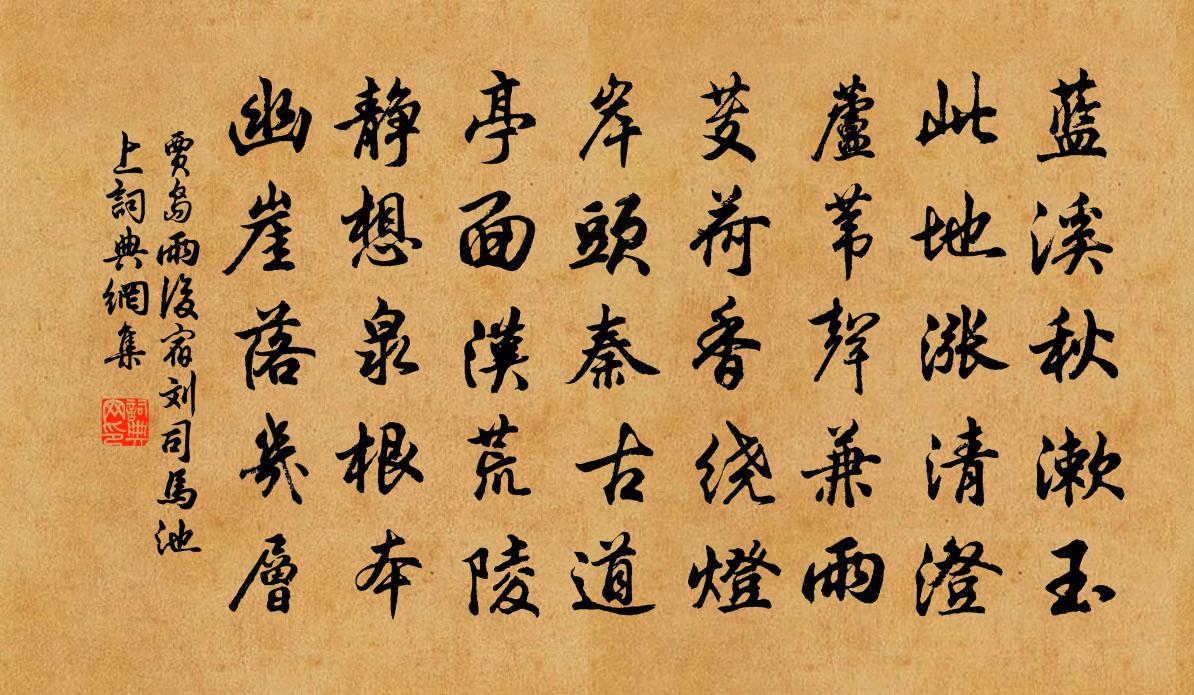 藍溪秋漱玉
此地漲清澄
蘆葦聲兼雨
芰荷香绕燈
岸頭秦古道
亭面漢荒陵
静想泉根本
幽崖落幾層
賈島雨後宿刘司馬池
上詞典網集
詞典
网印